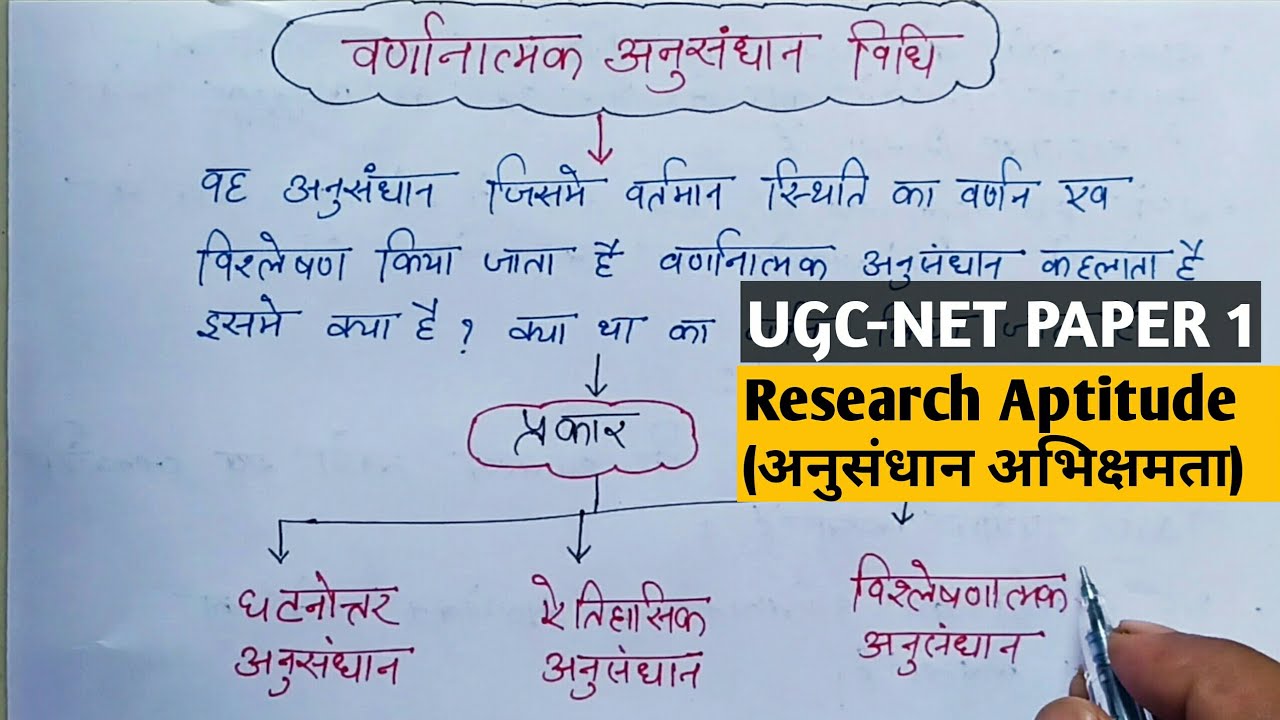 वर्णानात्मक अनुसंधान विधि
वह अनुसंधान जिसमे वर्तमान स्थिति का वर्णन एव
विश्लेषण किया जाता है वर्णानात्मक अनुसंधान कहलाता है
इसमे क्या है? क्या था का
UGC-NET PAPER 1
Research Aptitude
(अनुसंधान अभिक्षमता)
प्रकार
घटनोत्तर
अनुसंधान
ऐतिहासिक
अनुसंधान
विश्लेषणात्मक
अनुसंधान